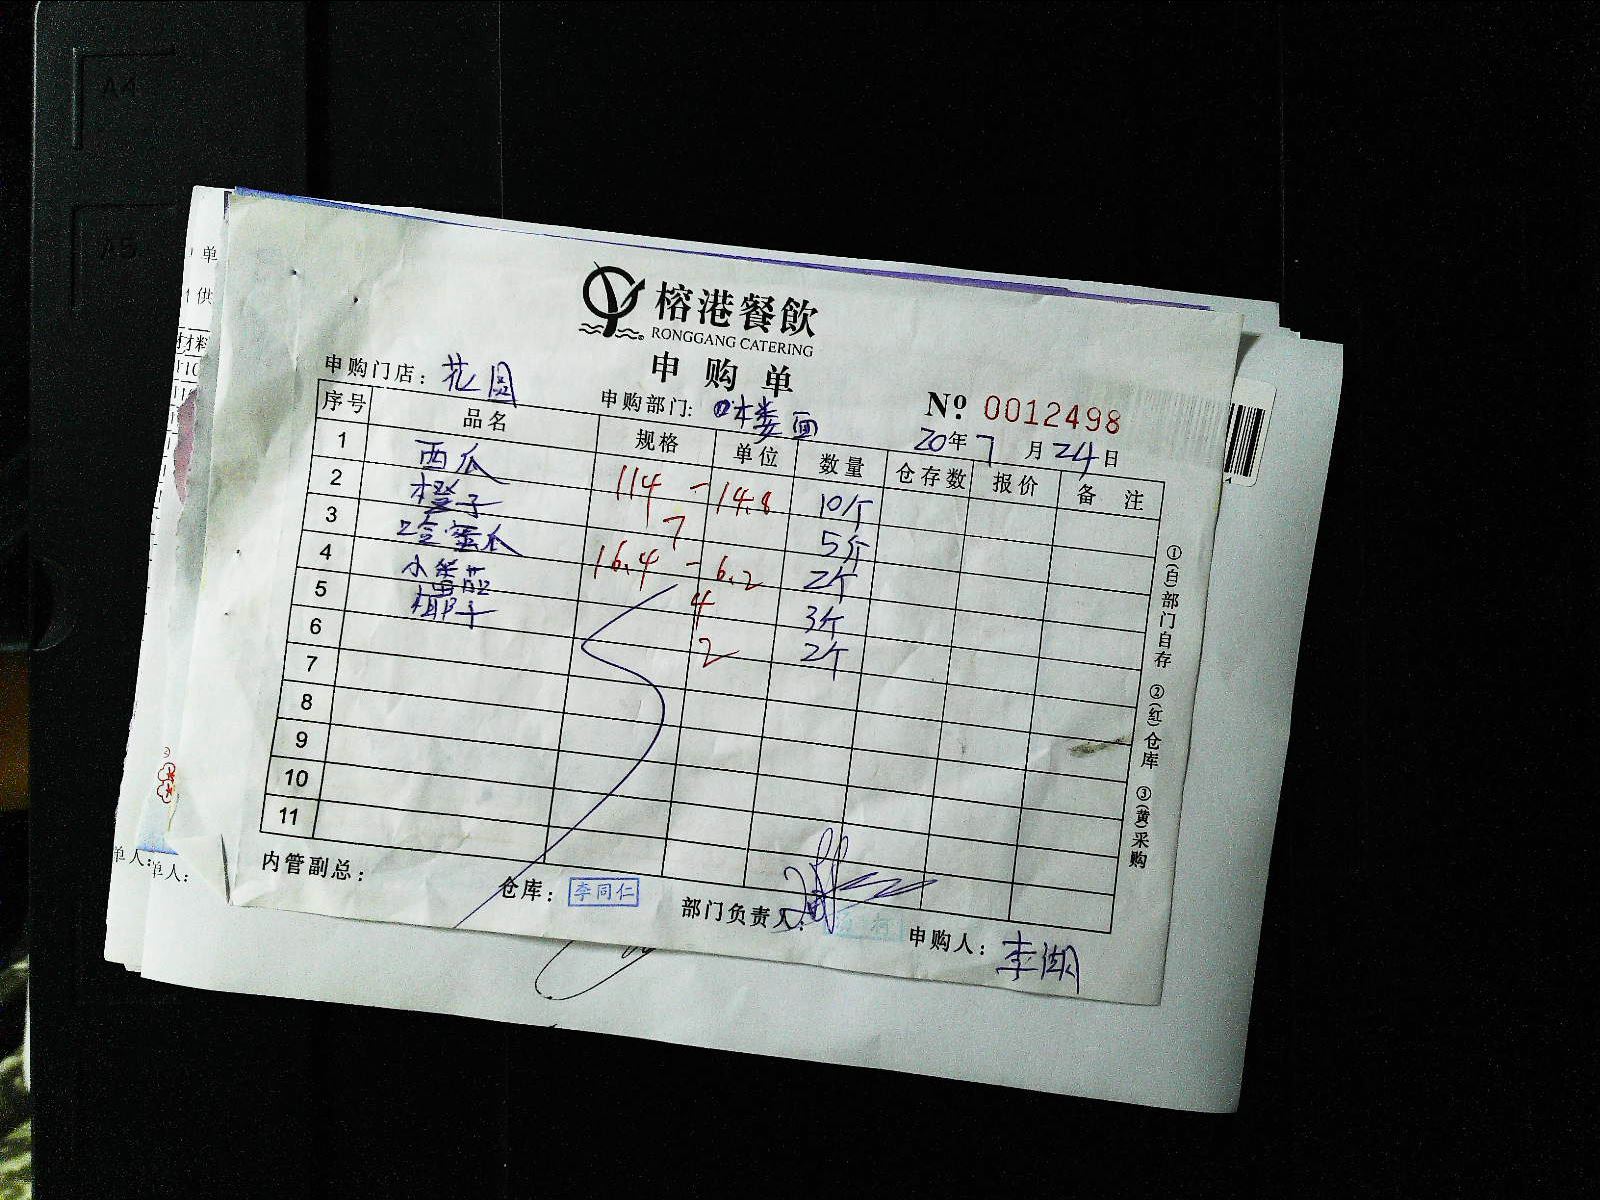 A4
A5
单
供
材料
榕港餐飲
RONGGANG CATERING
申购单
申购门店：花园
申购部门：楼面
№ 0012498
20年7月24日
序号 品名 规格 单位 数量 仓存数 报价 备注
1 西瓜 114 - 14.8 10个
2 橙子 7 5个
3 哈蜜瓜 16.4 - 6.2 2个
4 小番茄 4 3个
5 椰子 2 2个
6
7
8
9
10
11
①(白)部门自存 ②(红)仓库 ③(黄)采购
内管副总：
仓库：李同仁
部门负责人：
申购人：李湖
单人：
单人：